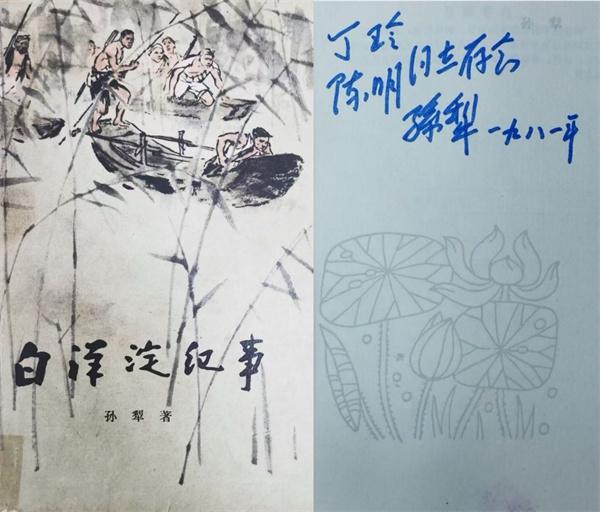 白洋淀纪事
孙犁著
孙犁
丁玲
陈明同志存念
孫犁 一九八一年